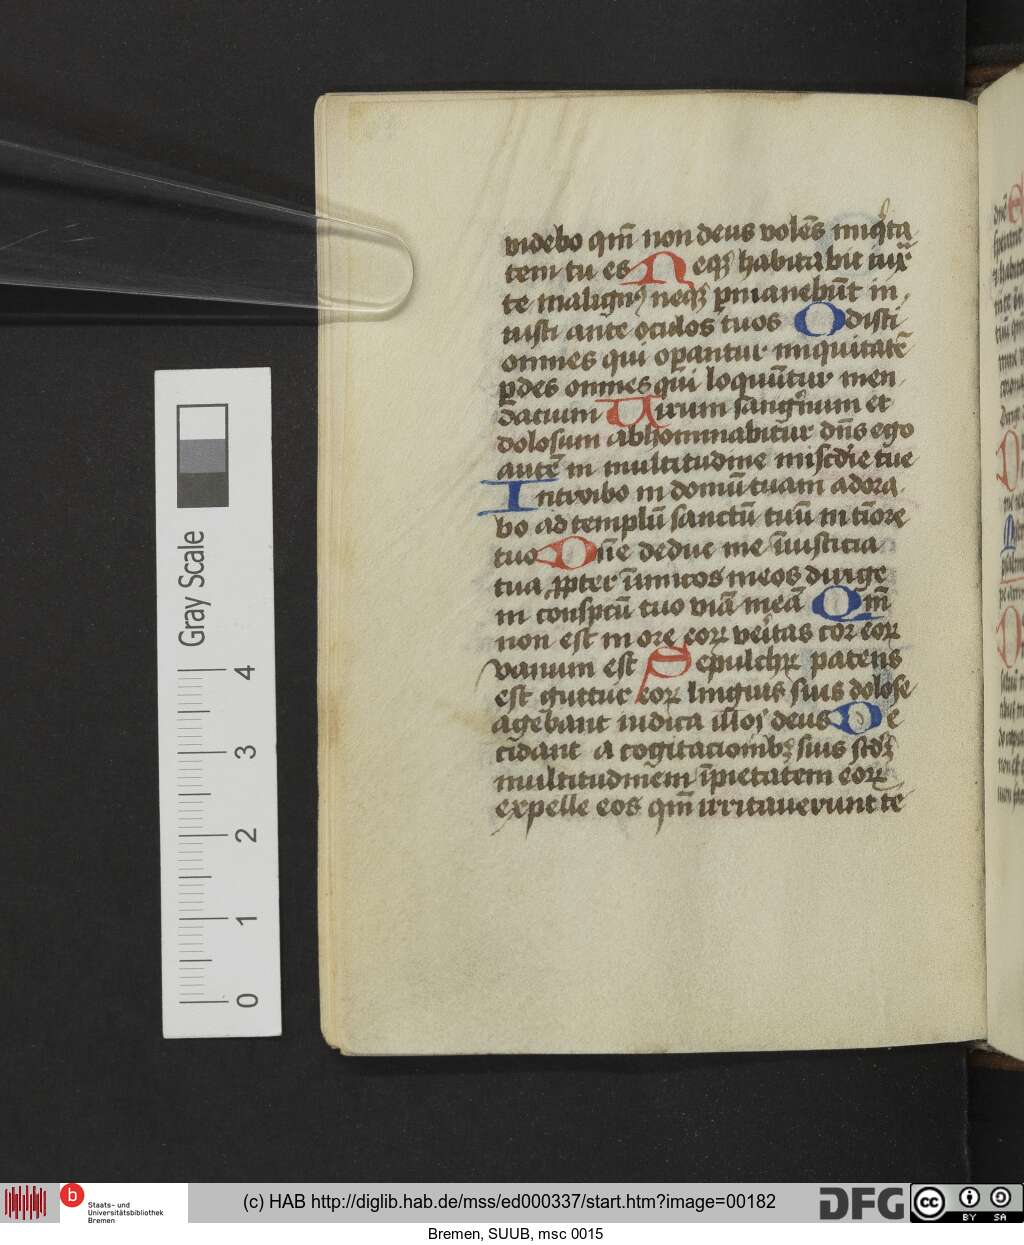 videbo qm̄ non deus volēs iniq̄ta
tem tu es Neqꝫ habitabit iux̄
te malignꝰ neqꝫ p̱manebūt in
iusti ante oculos tuos Odisti
omnes qui op̱antur iniquitatē
p̱des omnes qui loquūtur men
dacium Uirum sangͥnum et
dolosum abhominabitur dn̄s ego
autē in multitudine miscdīe tue
Introibo in domū tuam adora
bo ad templū sanctū tuū in tīore
tuo Dn̄e deduc me ī iusticia
tua ꝓpter īimicos meos dirige
in consp̄tū tuo viā meā Qm̄
non est in ore eoꝝ veītas cor eoꝝ
vanum est Sepulchꝝ patens
est guttur eoꝝ linguis suis dolose
agebant iudica illos deus De
cīdant a cogitacionibꝫ suis scd̄ꝫ
multitudinem īpietatem eoꝝ
expelle eos qm̄ irritauerunt te
Gray Scale
4
3
2
1
0
b
Staats- und
Universitätsbibliothek
Bremen
(c) HAB http://diglib.hab.de/mss/ed000337/start.htm?image=00182
DFG
cc
BY SA
Bremen, SUUB, msc 0015